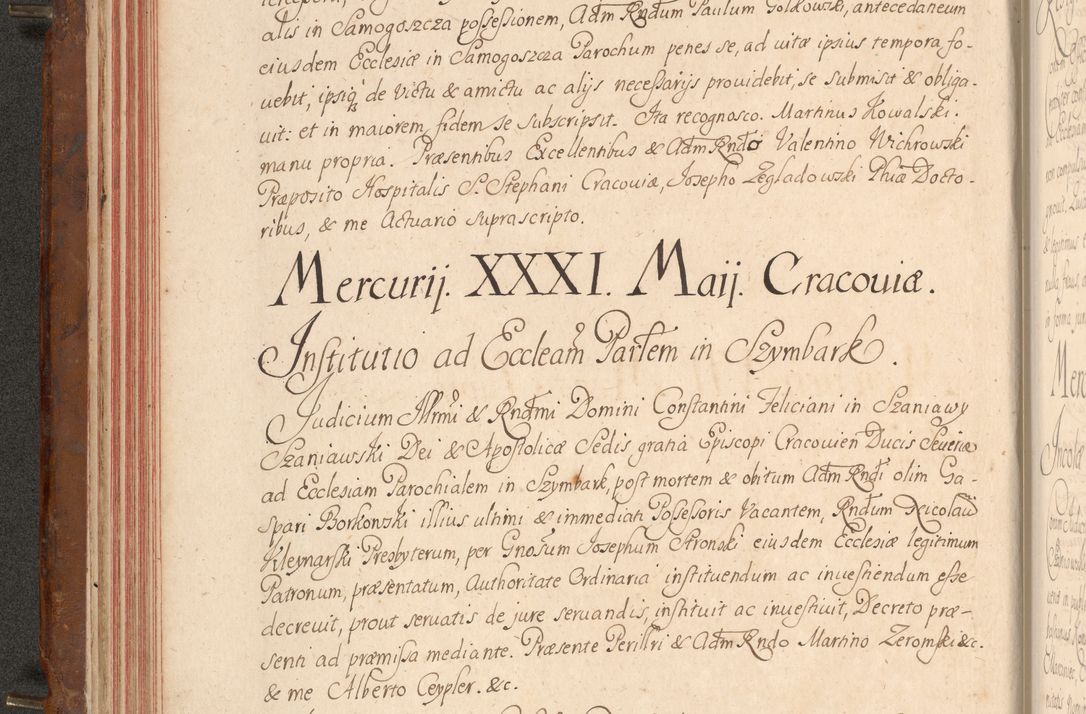 alis in Samogoszcza possessionem, Adm Rndum Paulum Golkowski, antecedaneum
eiusdem Ecclesiæ in Samogoszcza Parochum penes se, ad vitæ ipsius tempora fo-
uebit, ipsiq de victu & amictu ac alijs necessarijs prouidebit, se submisit & obliga-
uit: et in maiorem fidem se subscripsit. Ita recognosco. Martinus Kowalski.
manu propria. Præsentibus Excellentibus & Adm Rndo Valentino Wichrowski
Præposito Hospitalis S. Stephani Cracouiæ, Josepho Zegladowski Phiæ Docto-
ribus, & me Actuario suprascripto.
Mercurij. XXXI. Maij. Cracouiæ.
Institutio ad Eccleam Parlem in Szymbark.
Judicium Illrmi & Rndmi Domini Constantini Feliciani in Szaniawy
Szaniawski Dei & Apostolicæ Sedis gratia Episcopi Cracouien Ducis Seueriæ
ad Ecclesiam Parochialem in Szymbark, post mortem & obitum Adm Rndi olim Ga-
spari Borkonski illius ultimi & immediati Possessoris vacantem, Rndum Nicolaum
Kleynarski Presbyterum, per Gnosum Josephum Stronski eiusdem Ecclesiæ legitimum
Patronum, præsentatum, Authoritate Ordinaria instituendum ac inuestiendum esse
decreuit, prout seruatis de jure seruandis, instituit ac inuestiuit, Decreto præ-
senti ad præmissa mediante. Præsente Perillri & Adm Rndo Martino Zeromski &c.
& me Alberto Ceypler. &c.